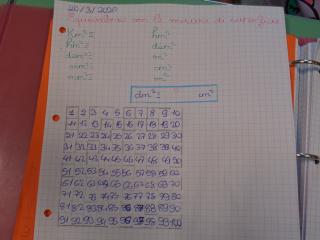 20/3/2020
Equivalenze con le misure di superficie
Km²= hm²
hm²= dam²
dam²= m²
dm²= cm²
1 2 3 4 5 6 7 8 9 10
11 12 13 14 15 16 17 18 19 20
21 22 23 24 25 26 27 28 29 30
31 32 33 34 35 36 37 38 39 40
41 42 43 44 45 46 47 48 49 50
51 52 53 54 55 56 57 58 59 60
61 62 63 64 65 66 67 68 69 70
71 72 73 74 75 76 77 78 79 80
81 82 83 84 85 86 87 88 89 90
91 92 93 94 95 96 97 98 99 100